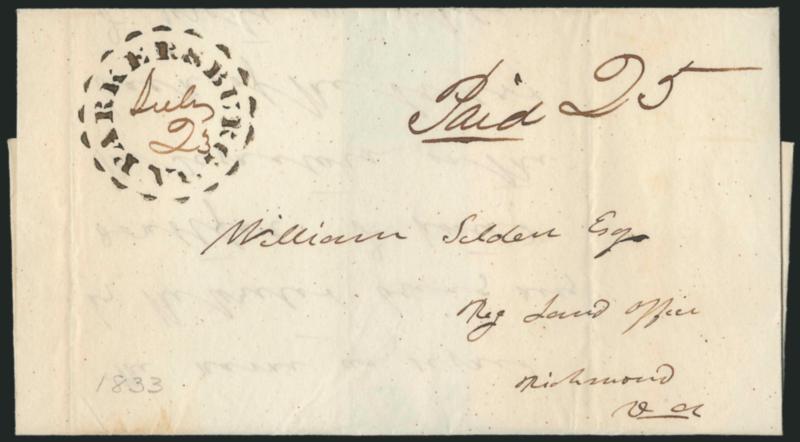 PARKERSBURG VA
July
23
Paid 25
William Selden Esq
Reg Land Office
Richmond
Va
1833